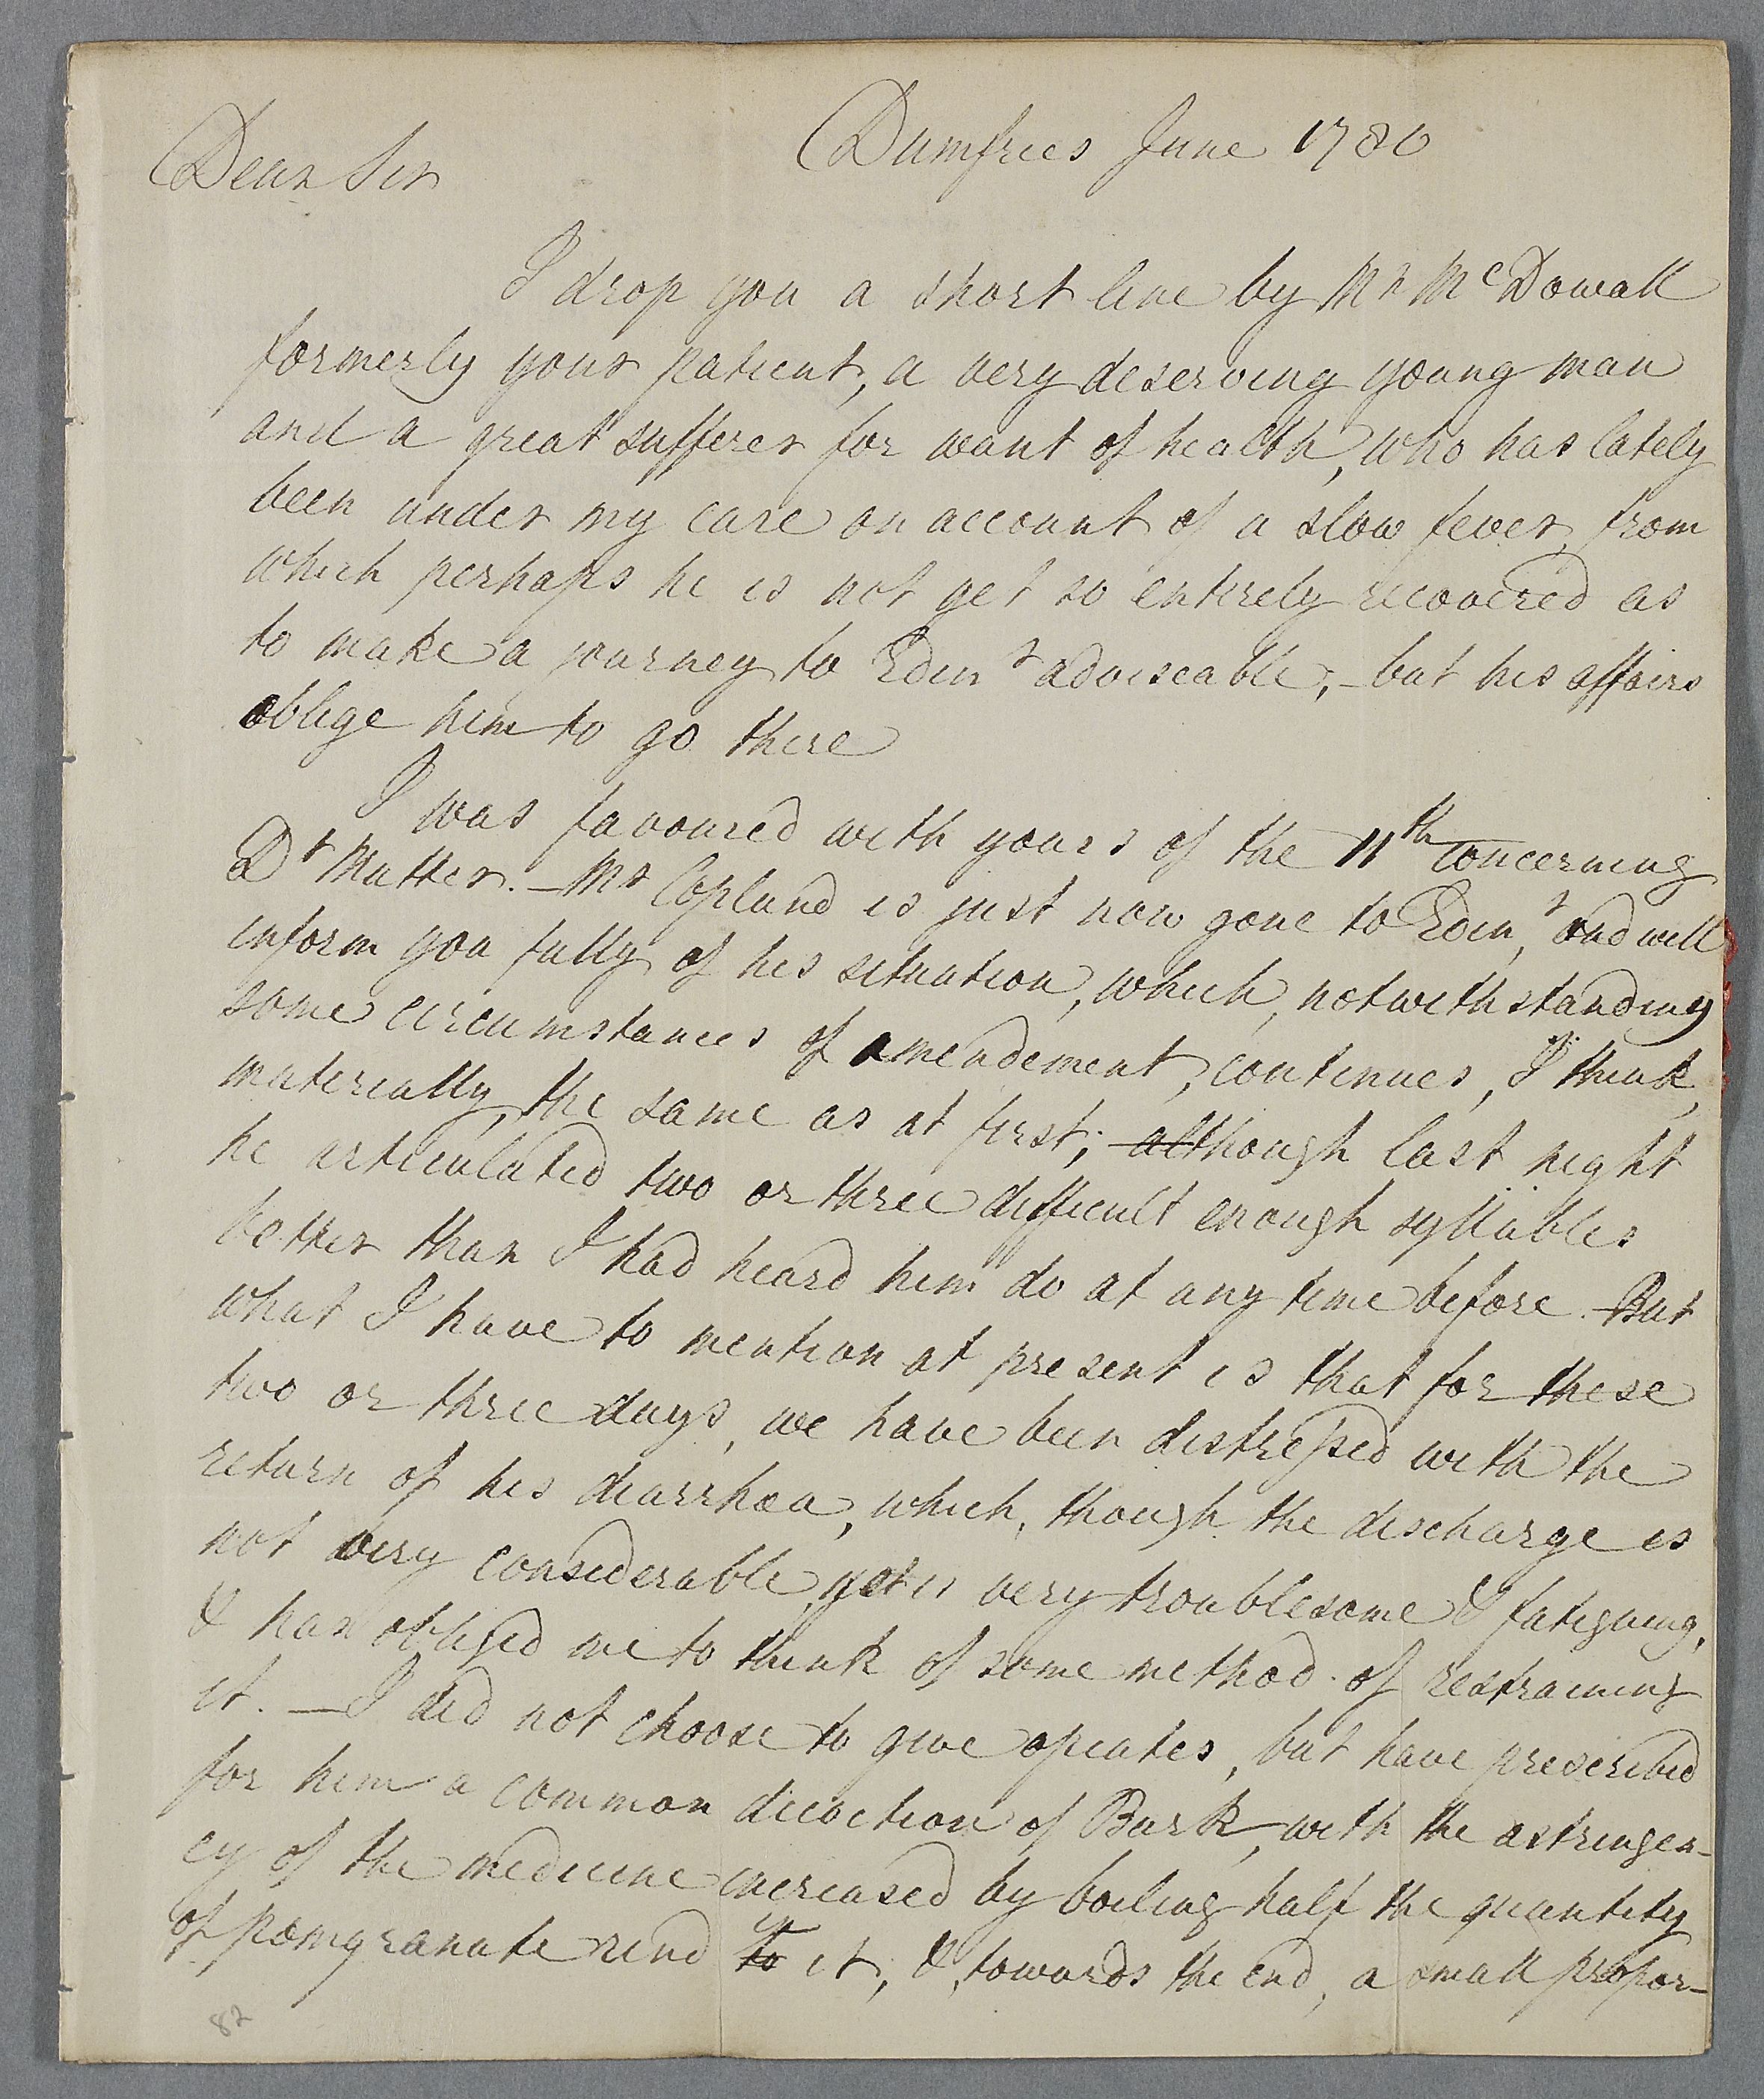 Dumfries June 1780
Dear Sir
I drop you a short line by Mr McDowall
formerly your patient, a very deserving young man
and a great sufferer for want of health, who has lately
been under my care on account of a slow fever, from
which perhaps he is not yet so entirely recovered as
to make a journey to Edinr adviseable; - but his affairs
oblige him to go there
I was favoured with yours of the 11th concerning
Dr Mutter. - Mr Copland is just now gone to Edinr, and will
inform you fully of his situation, which, notwithstanding
some circumstances of amendement, continues, I think,
materially, the same as at first; although last night
he articulated two or three difficult enough syllables
better than I had heard him do at any time before. - But
what I have to mention at present is that for these
two or three days, we have been distressed with the
return of his diarrhœa, which, though the discharge is
not very considerable, yet is very troublesome & fatiguing,
& has obliged me to think of some method of restraining
it. - I did not choose to give opiates, but have prescribed
for him a common decoction of Bark, with the astringen-
cy of the medicine increased by boiling half the quantity
of pomgranate rind to it, &, towards the end, a small propor-
82